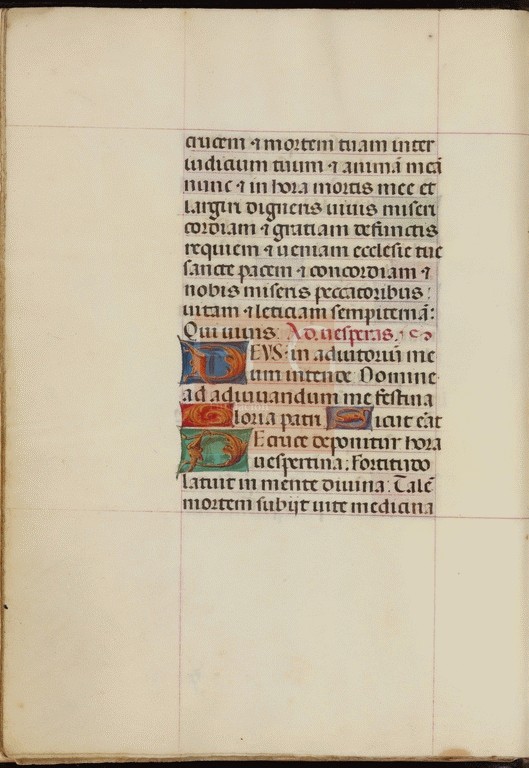 crucem ⁊ mortem tuam inter
iudicium tuum ⁊ animā meā
nunc ⁊ in hora mortis mee et
largiri digneris uiuis miseri
cordiam ⁊ gratiam defunctis
requiem ⁊ ueniam ecclesie tue
sancte pacem ⁊ concordiam ⁊
nobis miseris peccatoribus:
uitam ⁊ leticiam sempiternā:
Qui uiuis. Ad uesperas.
DEVS in adiutoriū me
um intende Domine
ad adiuuandum me festina
Gloria patri Sicut erat
De cruce deponitur hora
uespertina; Fortitudo
latuit in mente diuina: Talē
mortem subijt uite medicina